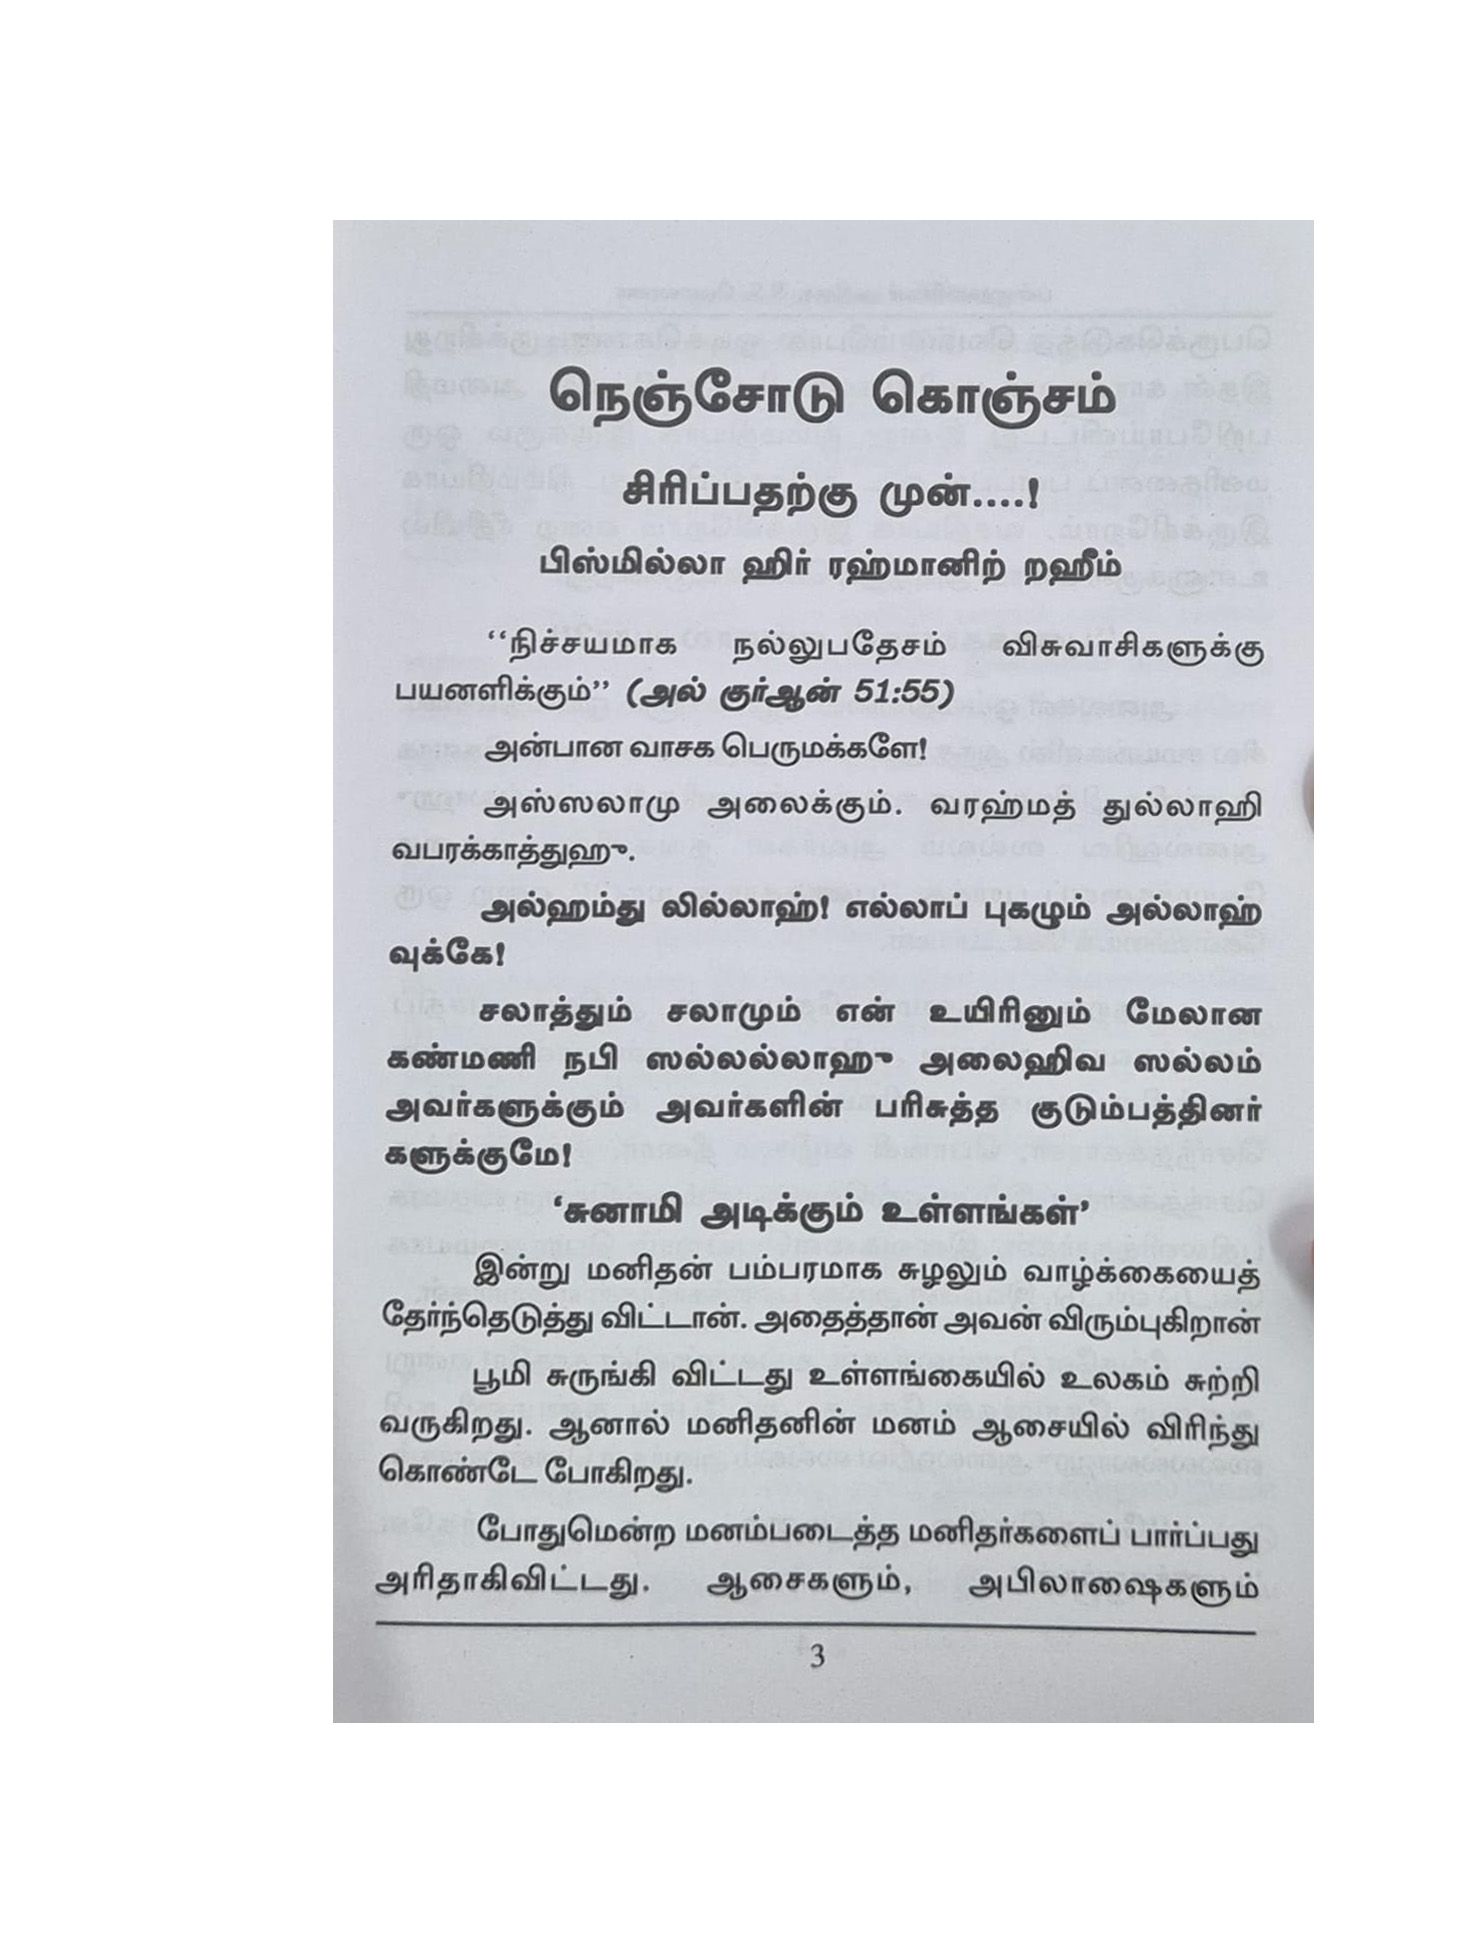 நெஞ்சோடு கொஞ்சம்
சிரிப்பதற்கு முன்....!
பிஸ்மில்லா ஹிர் ரஹ்மானிற் றஹீம்
‘‘நிச்சயமாக நல்லுபதேசம் விசுவாசிகளுக்கு
பயனளிக்கும்’’ (அல் குர்ஆன் 51:55)
அன்பான வாசக பெருமக்களே!
அஸ்ஸலாமு அலைக்கும். வரஹ்மத் துல்லாஹி
வபரக்காத்துஹு.
அல்ஹம்து லில்லாஹ்! எல்லாப் புகழும் அல்லாஹ்
வுக்கே!
சலாத்தும் சலாமும் என் உயிரினும் மேலான
கண்மணி நபி ஸல்லல்லாஹு அலைஹிவ ஸல்லம்
அவர்களுக்கும் அவர்களின் பரிசுத்த குடும்பத்தினர்
களுக்குமே!
‘சுனாமி அடிக்கும் உள்ளங்கள்’
இன்று மனிதன் பம்பரமாக சுழலும் வாழ்க்கையைத்
தேர்ந்தெடுத்து விட்டான். அதைத்தான் அவன் விரும்புகிறான்
பூமி சுருங்கி விட்டது உள்ளங்கையில் உலகம் சுற்றி
வருகிறது. ஆனால் மனிதனின் மனம் ஆசையில் விரிந்து
கொண்டே போகிறது.
போதுமென்ற மனம்படைத்த மனிதர்களைப் பார்ப்பது
அரிதாகிவிட்டது. ஆசைகளும், அபிலாஷைகளும்
3